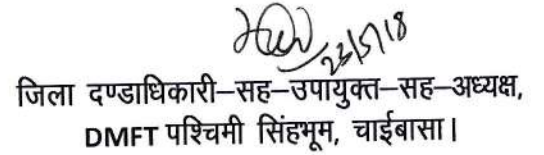 23/5/18
जिला दण्डाधिकारी–सह–उपायुक्त–सह–अध्यक्ष,
DMFT पश्चिमी सिंहभूम, चाईबासा।